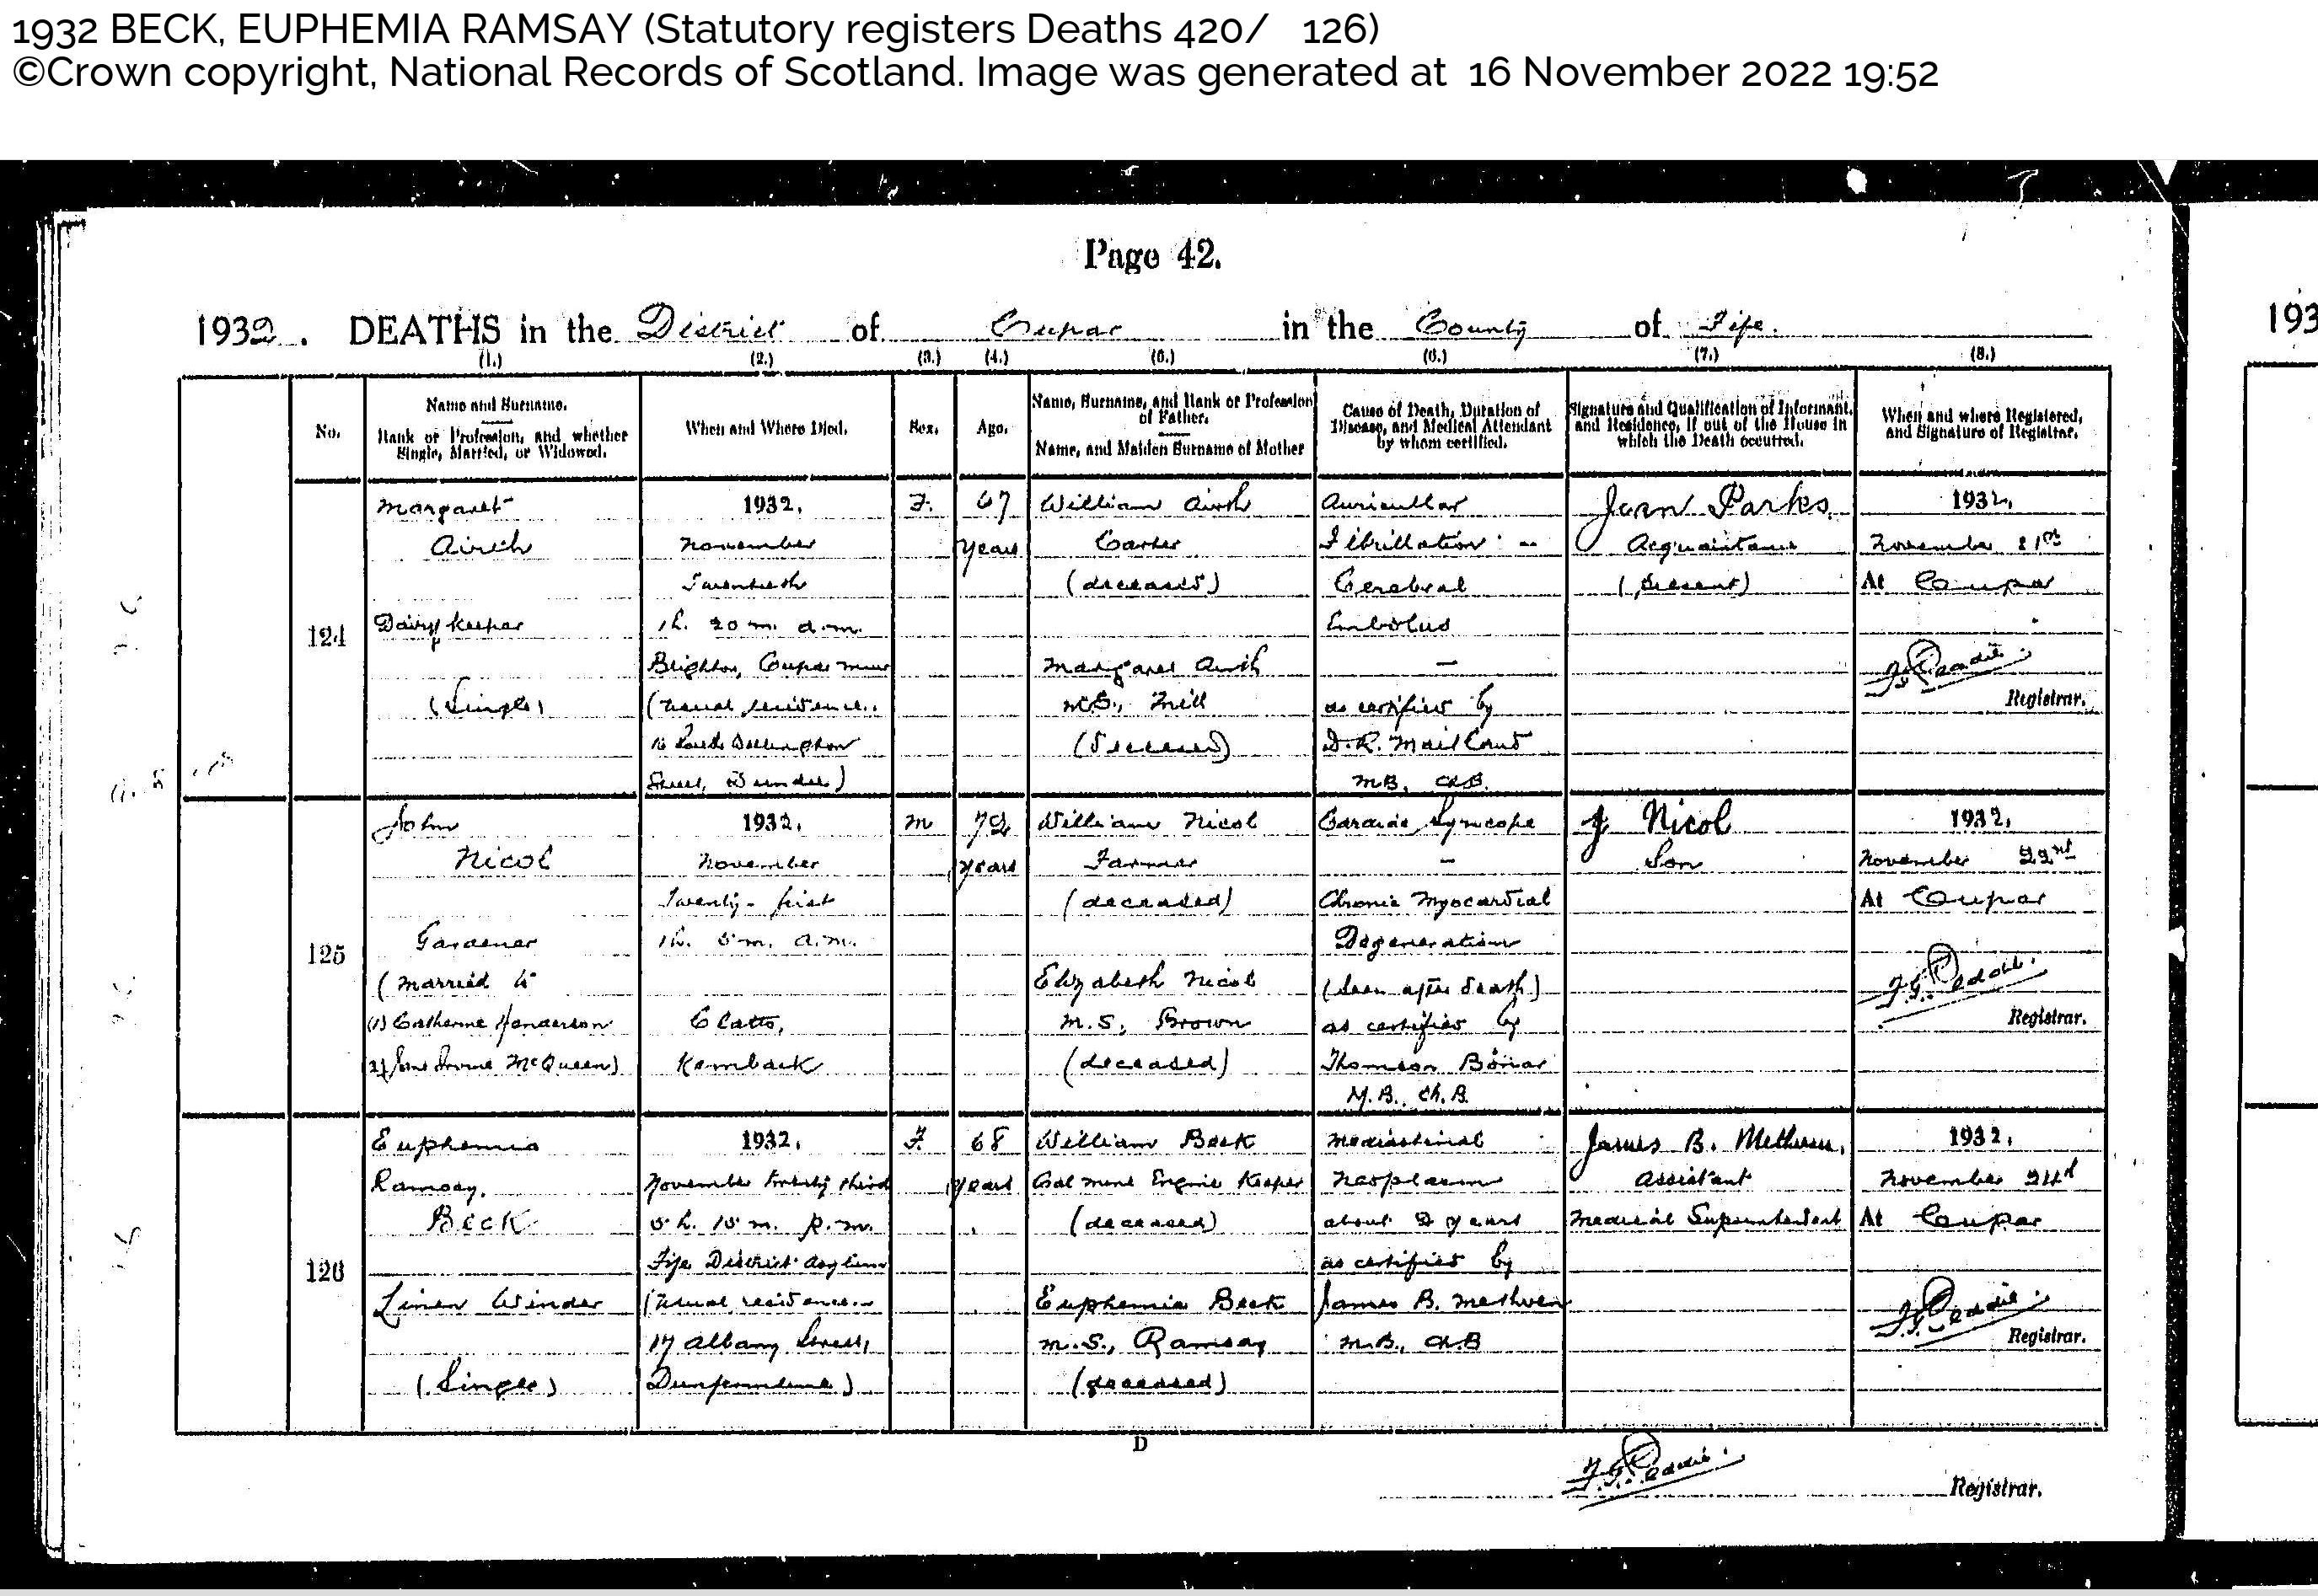 1932 BECK, EUPHEMIA RAMSAY (Statutory registers Deaths 420/ 126)
©Crown copyright, National Records of Scotland. Image was generated at 16 November 2022 19:52
Page 42.
1932. DEATHS in the District of Cupar in the County of Fife.
193
(1.) (2.) (3.) (4.) (5.) (6.) (7.) (8.)
No.
Name and Surname.
Rank or Profession, and whether
Single, Married, or Widowed.
When and Where Died.
Sex.
Age.
Name, Surname, and Rank or Profession
of Father.
Name, and Maiden Surname of Mother
Cause of Death, Duration of
Disease, and Medical Attendant
by whom certified.
Signature and Qualification of Informant,
and Residence, if out of the House in
which the Death occurred.
When and where Registered,
and Signature of Registrar.
124
Margaret
Airth
Dairykeeper
(Single)
1932.
November
Twentieth
1h. 20m. a.m.
Brighton, Cupar Muir
(usual residence..
Street, Dundee)
F.
67
years
William Airth
Carter
(deceased)
Margaret Airth
M.S., Mill
(deceased)
Auricular
Fibrillation --
Cerebral
Embolus
—
as certified by
D.R. Maitland
M.B., Ch.B.
Jean Parks.
Acquaintance
(Present)
1932.
November 21st
At Cupar
Registrar.
125
John
Nicol
Gardener
(Married to
(1) Catherine Henderson
2) Jane Irvine McQueen)
1932.
November
Twenty-first
1h. 5m. a.m.
Clatto,
Kemback
M
72
years
William Nicol
Farmer
(deceased)
Elizabeth Nicol
M.S., Brown
(deceased)
Cardiac Syncope
—
Chronic Myocardial
Degeneration
(seen after death)
as certified by
Thomson Bonar
M.B., Ch.B.
J Nicol
Son
1932.
November 22nd
At Cupar
Registrar.
126
Euphemia
Ramsay
Beck
Linen Winder
(Single)
1932.
November Twenty third
5h. 15m. p.m.
Fife District Asylum
(usual residence..
17 Albany Street,
Dunfermline)
F.
68
years
William Beck
Coal mine Engine Keeper
(deceased)
Euphemia Beck
M.S., Ramsay
(deceased)
Mediastinal
Neoplasm
about 2 years
as certified by
James B. Methven
M.B., Ch.B
James B. Methven,
Assistant
Medical Superintendent
1932.
November 24th
At Cupar
Registrar.
D
Registrar.